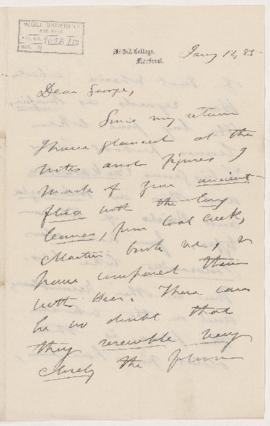 McGILL UNIVERSITY
McGill College,
Montreal.
Jany 12, 85
Dear George,
Since my return
I have glanced at the
notes and figures I
made of your ancient
with the long
from Coal Creek,
Martin and, &
have compared them
with Heer. There can
be no doubt that
they resemble very
closely the